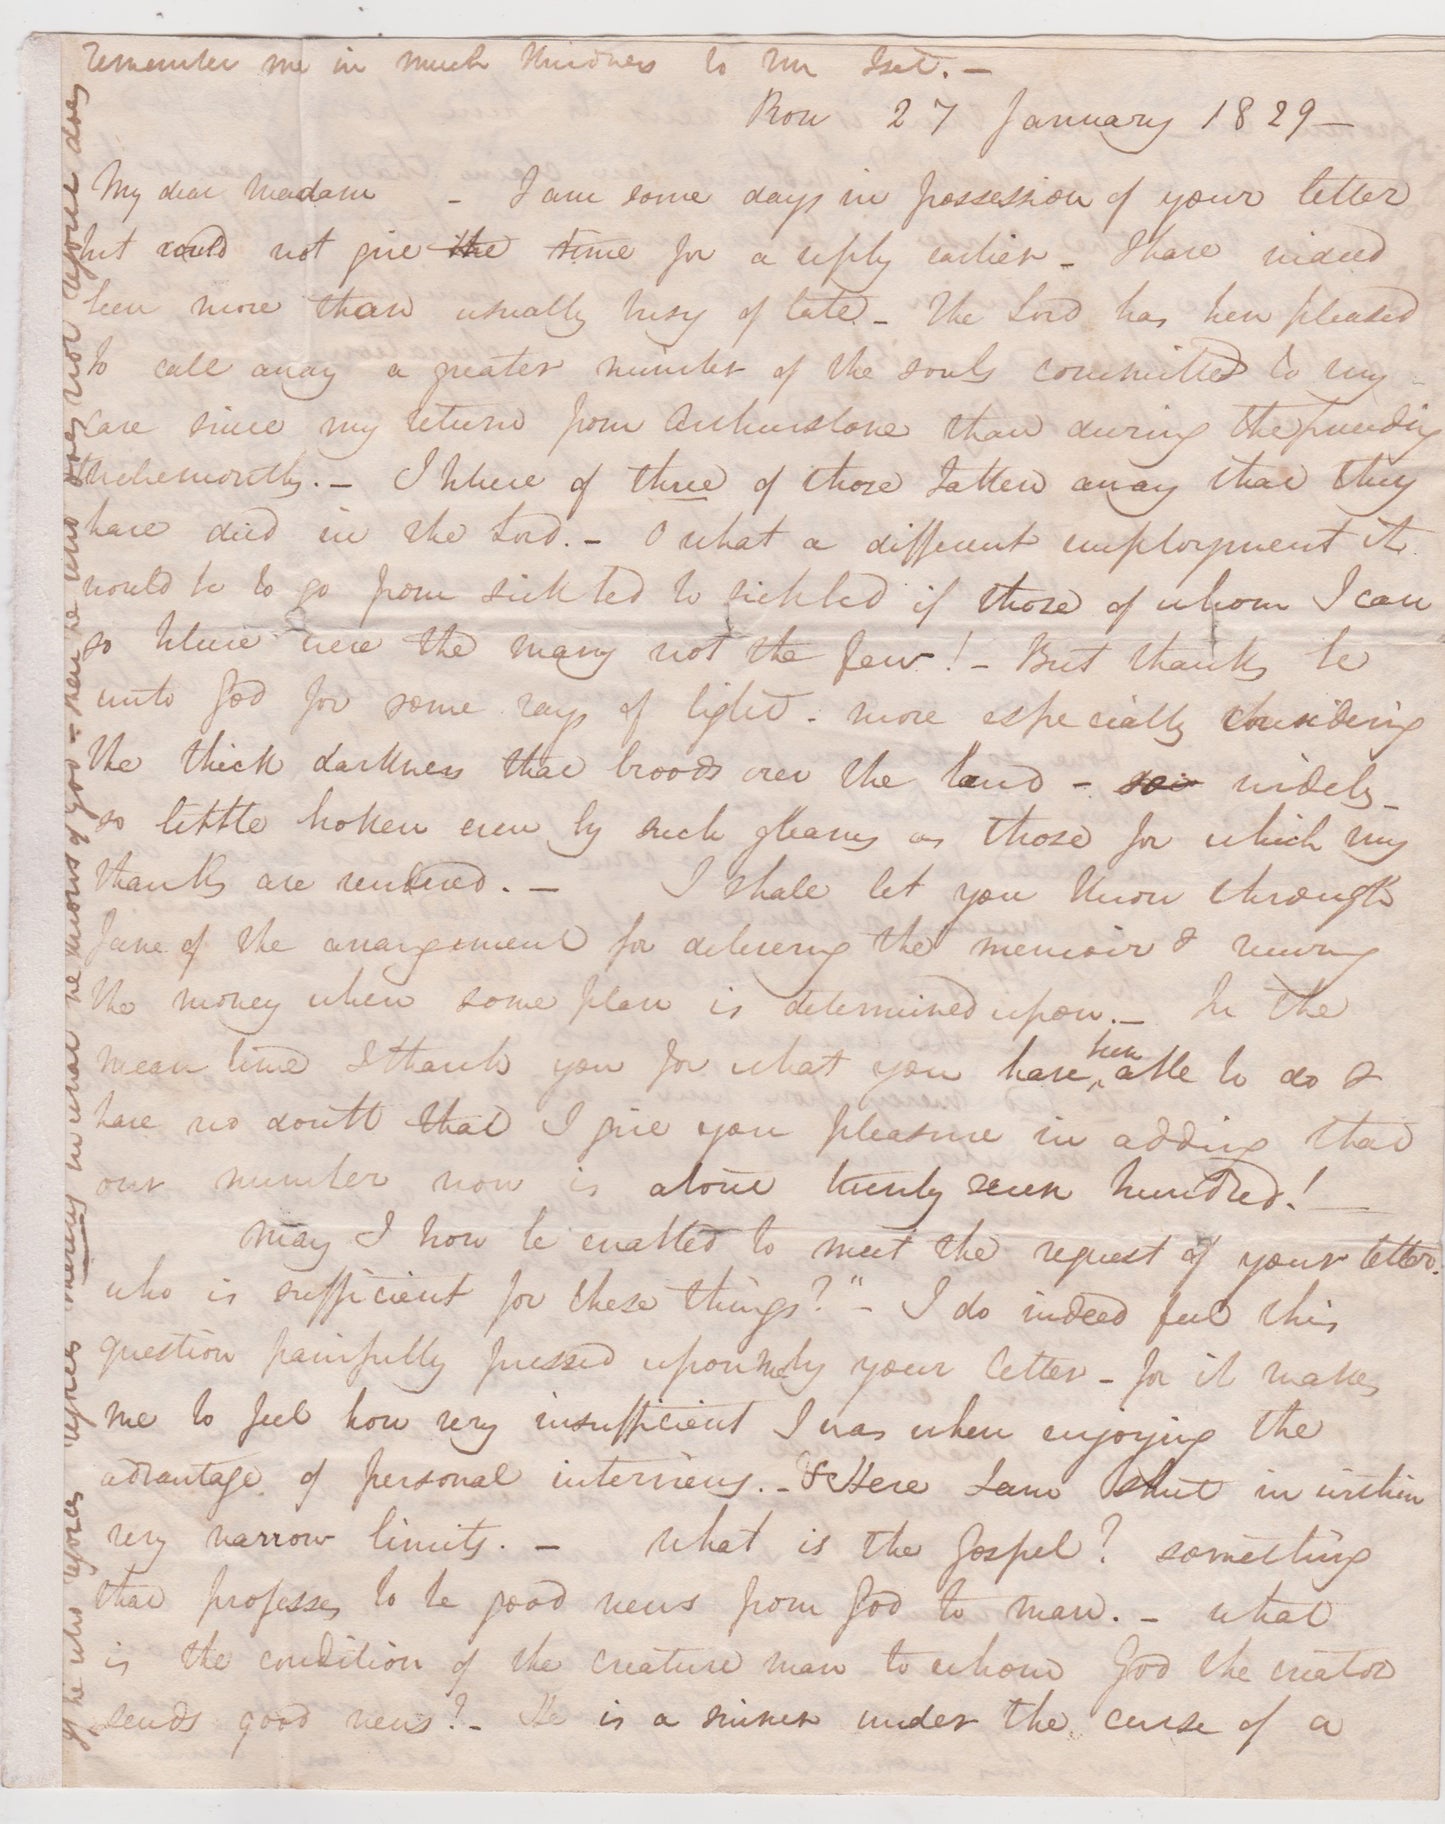 remember me in much kindness to Mr Iset. –
Row 27 January 1829 –
My dear Madam – I am some days in possession of your letter
but could not give the time for a reply earlier – I have indeed
been more than usually busy of late – The Lord has been pleased
to call away a greater number of the souls committed to my
care since my return from Arthurstone than during the preceding
twelvemonth. – I believe of three of those taken away that they
have died in the Lord. – O what a different employment it
would be to go from sickbed to sickbed if those of whom I can
so believe were the many not the few! – But thanks be
unto God for some rays of light – more especially considering
the thick darkness that broods over the land – so widely –
so little broken even by such gleams as those for which my
thanks are rendered. – I shall let you know through
Jane of the arrangement for delivering the memoir & receiving
the money when some plan is determined upon. – In the
mean time I thank you for what you have been able to do &
have no doubt that I give you pleasure in adding that
our number now is above twenty seven hundred! –
May I now be enabled to meet the request of your letter.
who is sufficient for these things?" – I do indeed feel this
question painfully pressed upon me by your letter – for it makes
me to feel how very insufficient I was when enjoying the
advantage of personal interviews. – Here I am shut in within
very narrow limits. – What is the Gospel? something
that professes to be good news from God to man. – what
is the condition of the creature man to whom God the creator
sends good news? – He is a sinner under the curse of a
if he who
mercy in what he knows of God – then he who does not does